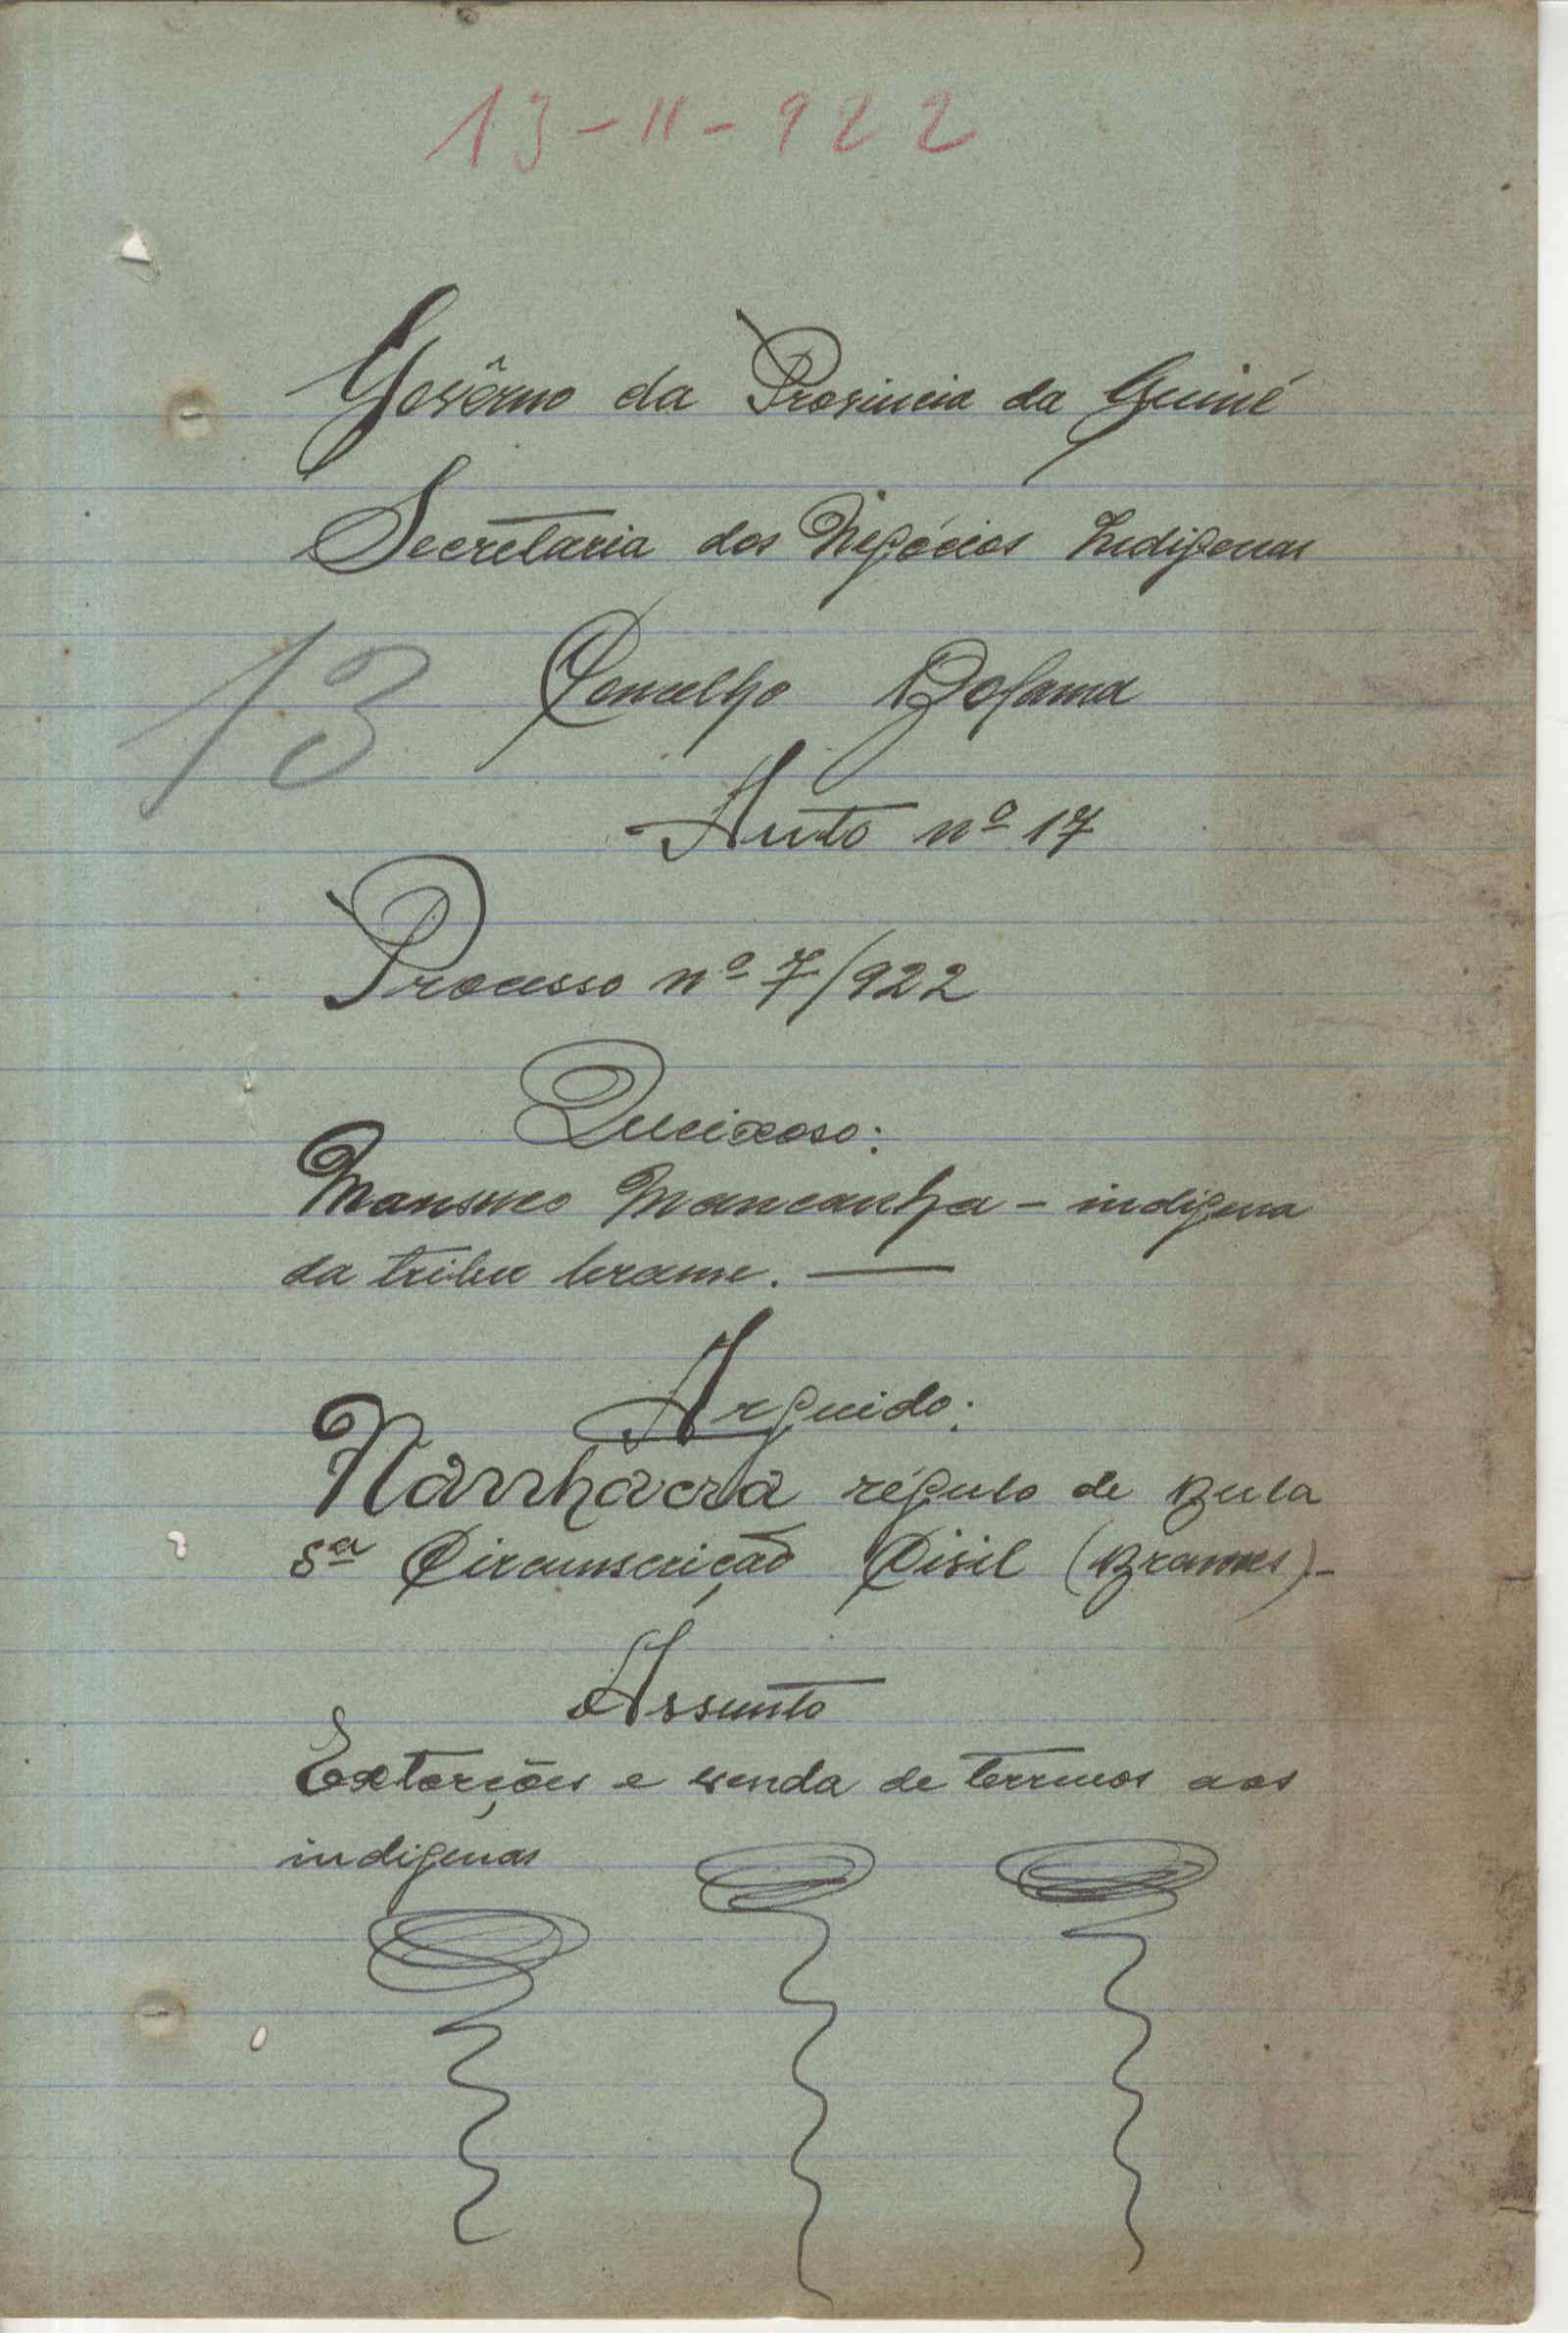 13-11-922
Govêrno da Provincia da Guiné
Secretaria dos Negócios Indigenas
13
Concelho Bolama
Auto nº 17
Processo nº 7/922
Queixoso:
Mansuco Mancanha - indigena
da tribu brame.
Arguido:
régulo de Bula
8ª Circunscrição Civil (Brames).-
Assunto
Extorções e venda de terrenos aos
indigenas